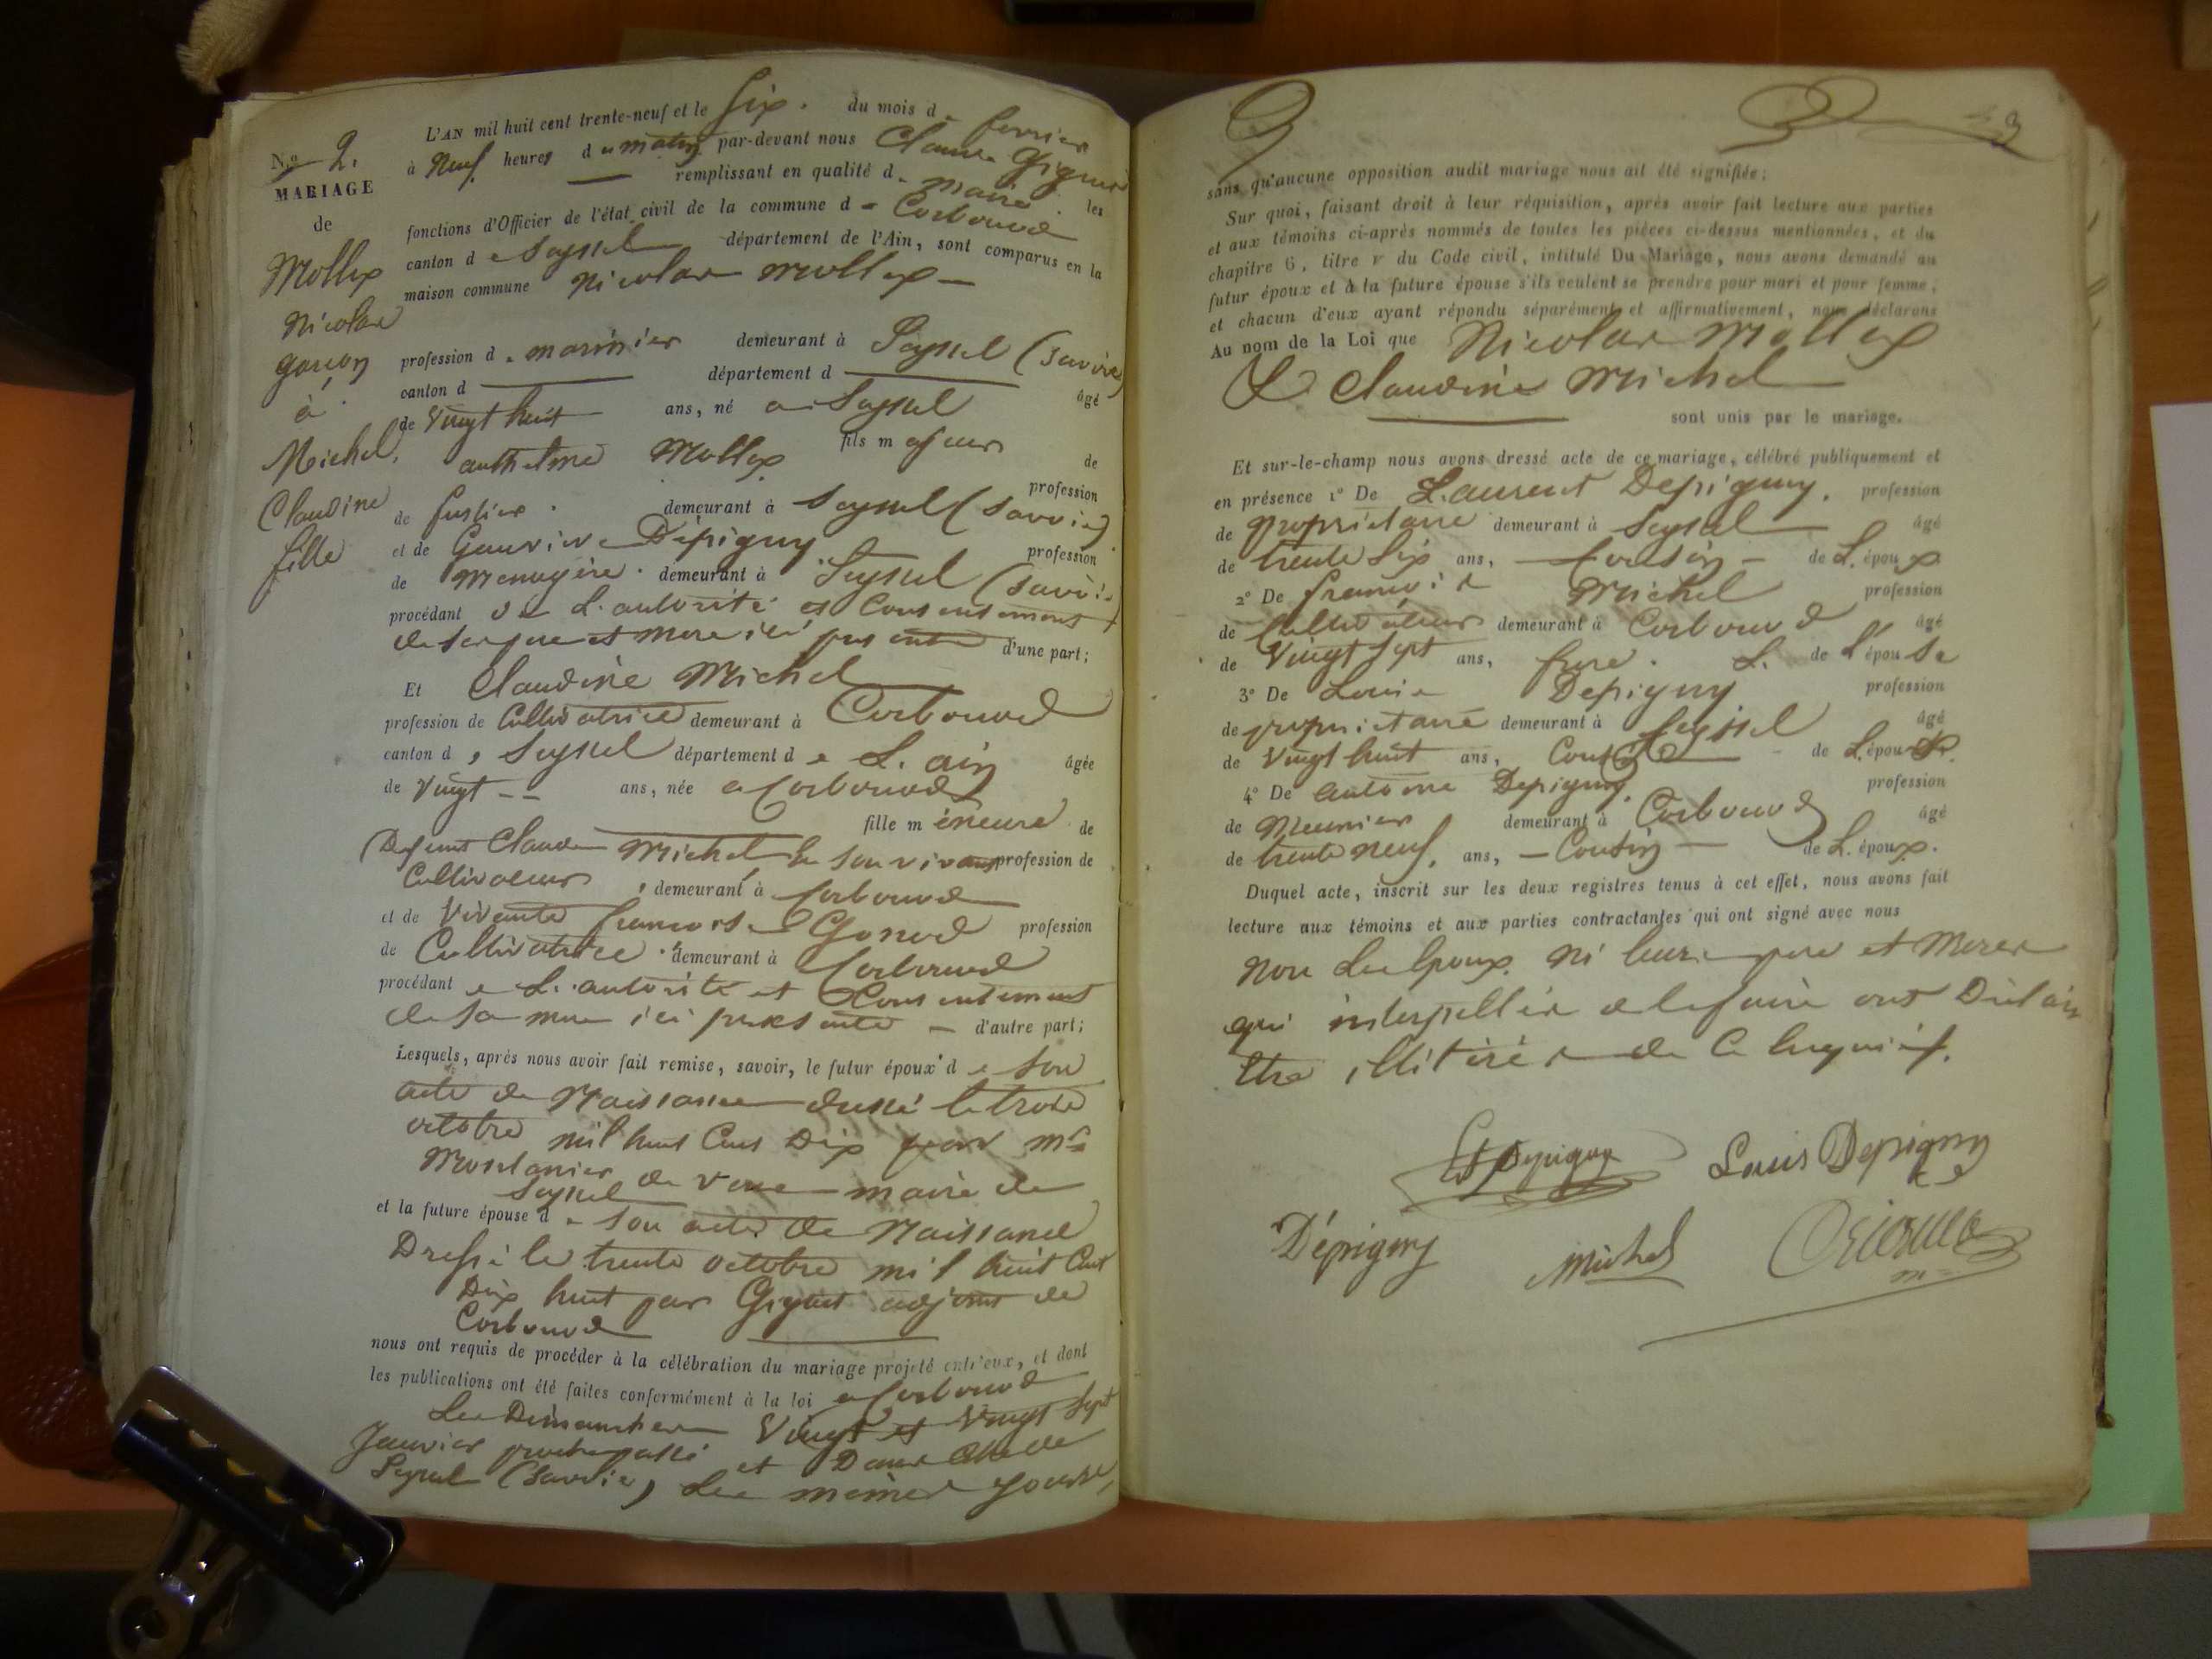 L'AN mil huit cent trente-neuf et le Six. du mois d. fevrier
No 2. à Neuf heures du matin par-devant nous Claude
MARIAGE remplissant en qualité de maire les
de fonctions d'Officier de l'état civil de la commune de Corbonod
Mollex canton de Seyssel département de l'Ain, sont comparus en la
maison commune Nicolas Mollex
Nicolas
garçon profession de marinier demeurant à Seyssel (Savoie)
à canton d département d âgé
de vingt huit ans, né a Seyssel
Michel, anthelme Mollex fils majeur de
Claudine de fustier. demeurant à Seyssel (Savoie) profession
fille et de Depigny profession
de Menagère. demeurant à Seyssel (Savoie
procédant de L'autorité et Consentement
de ses pere et mere ici presents d'une part;
Et Claudine Michel
profession de Cultivatrice demeurant à Corbonod
canton de Seyssel département de L'ain âgée
de vingt -- ans, née a Corbonod
fille mineure de
Defunt Claude Michel de son vivant profession de
Cultivateur, demeurant à Corbonod
et de Vivante françoise Gonod profession
de Cultivatrice. demeurant à Corbonod
procédant de L'autorité et Consentement
de Sa mere ici presente — d'autre part;
Lesquels, après nous avoir fait remise, savoir, le futur époux de Son
acte de Naissance dressé le trois
octobre mil huit Cent Dix par Mr
Montanier de maire de
Seyssel
et la future épouse de son acte de Naissance
Dressé le trente octobre mil huit Cent
Dix huit par adjoint de
Corbonod
nous ont requis de procéder à la célébration du mariage projeté entr'eux, et dont
les publications ont été faites conformément à la loi a Corbonod
Les Dimanches Vingt et Vingt Sept
Janvier proche passé et Dans celle de
Seyssel (Savoie) les mêmes jours,
3
sans qu'aucune opposition audit mariage nous ait été signifiée;
Sur quoi, faisant droit à leur réquisition, après avoir fait lecture aux parties
et aux témoins ci-après nommés de toutes les pièces ci-dessus mentionnées, et du
chapitre 6, titre v du Code civil, intitulé Du Mariage, nous avons demandé au
futur époux et à la future épouse s'ils veulent se prendre pour mari et pour femme;
et chacun d'eux ayant répondu séparément et affirmativement, nous déclarons
Au nom de la Loi que Nicolas Mollex
Et Claudine Michel
sont unis par le mariage.
Et sur-le-champ nous avons dressé acte de ce mariage, célébré publiquement et
en présence 1° De Laurent Depigny. profession
de propriétaire demeurant à Seyssel âgé
de trente Six ans, Cousin — de L'époux
2° De françois Michel profession
de Cultivateur demeurant à Corbonod âgé
de Vingt Sept ans, frere. de L'épouse
3° De Louis Depigny profession
de proprietaire demeurant à Seyssel âgé
de Vingt huit ans, Cousin de L'époux.
4° De antoine Depigny. profession
de Meunier demeurant à Corbonod âgé
de trente neuf. ans, — Cousin — de L'époux.
Duquel acte, inscrit sur les deux registres tenus à cet effet, nous avons fait
lecture aux témoins et aux parties contractantes qui ont signé avec nous
Non Les Epoux. Ni leurs pere et Meres
qui interpellés de le faire ont Déclaré
être illitérés de ce Enquis.
Depigny Louis Depigny
Dépigny Michel